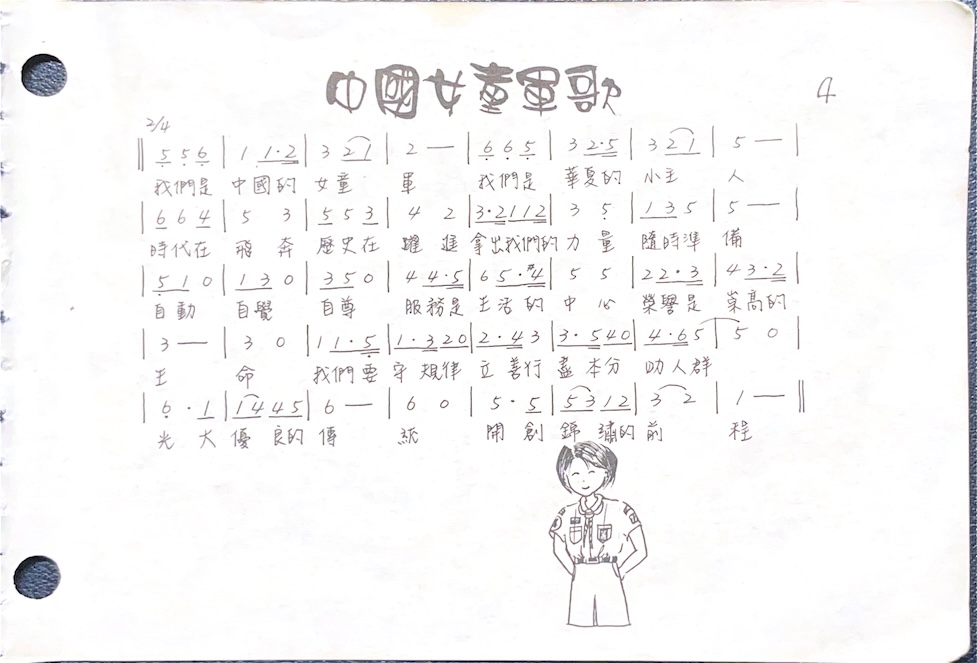 中國女童軍歌
4
2/4
‖ 5 5 6 | 1 1·2 | 3 2 1 | 2 — | 6 6 5 | 3 2·5 | 3 2 1 | 5 — |
我們是 中國的 女童 軍 我們是 華夏的 小主 人
| 6 6 4 | 5 3 | 5 5 3 | 4 2 | 3·2 1 1 2 | 3 5 | 1 3 5 | 5 — |
時代在 飛奔 歷史在 躍進 拿出我們的力量 隨時準備
| 5 1 0 | 1 3 0 | 3 5 0 | 4 4·5 | 6 5·#4 | 5 5 | 2 2·3 | 4 3·2 |
自動 自覺 自尊 服務是 生活的 中心 榮譽是 崇高的
| 3 — | 3 0 | 1 1·5 | 1·3 2 0 | 2·4 3 | 3·5 4 0 | 4·6 5 | 5 0 |
生 命 我們要 守規律 立善行 盡本分 助人群
| 6·1 | 1 4 4 5 | 6 — | 6 0 | 5·5 | 5 3 1 2 | 3 2 | 1 — ‖
光大 優良的 傳 統 開創 錦繡的 前 程